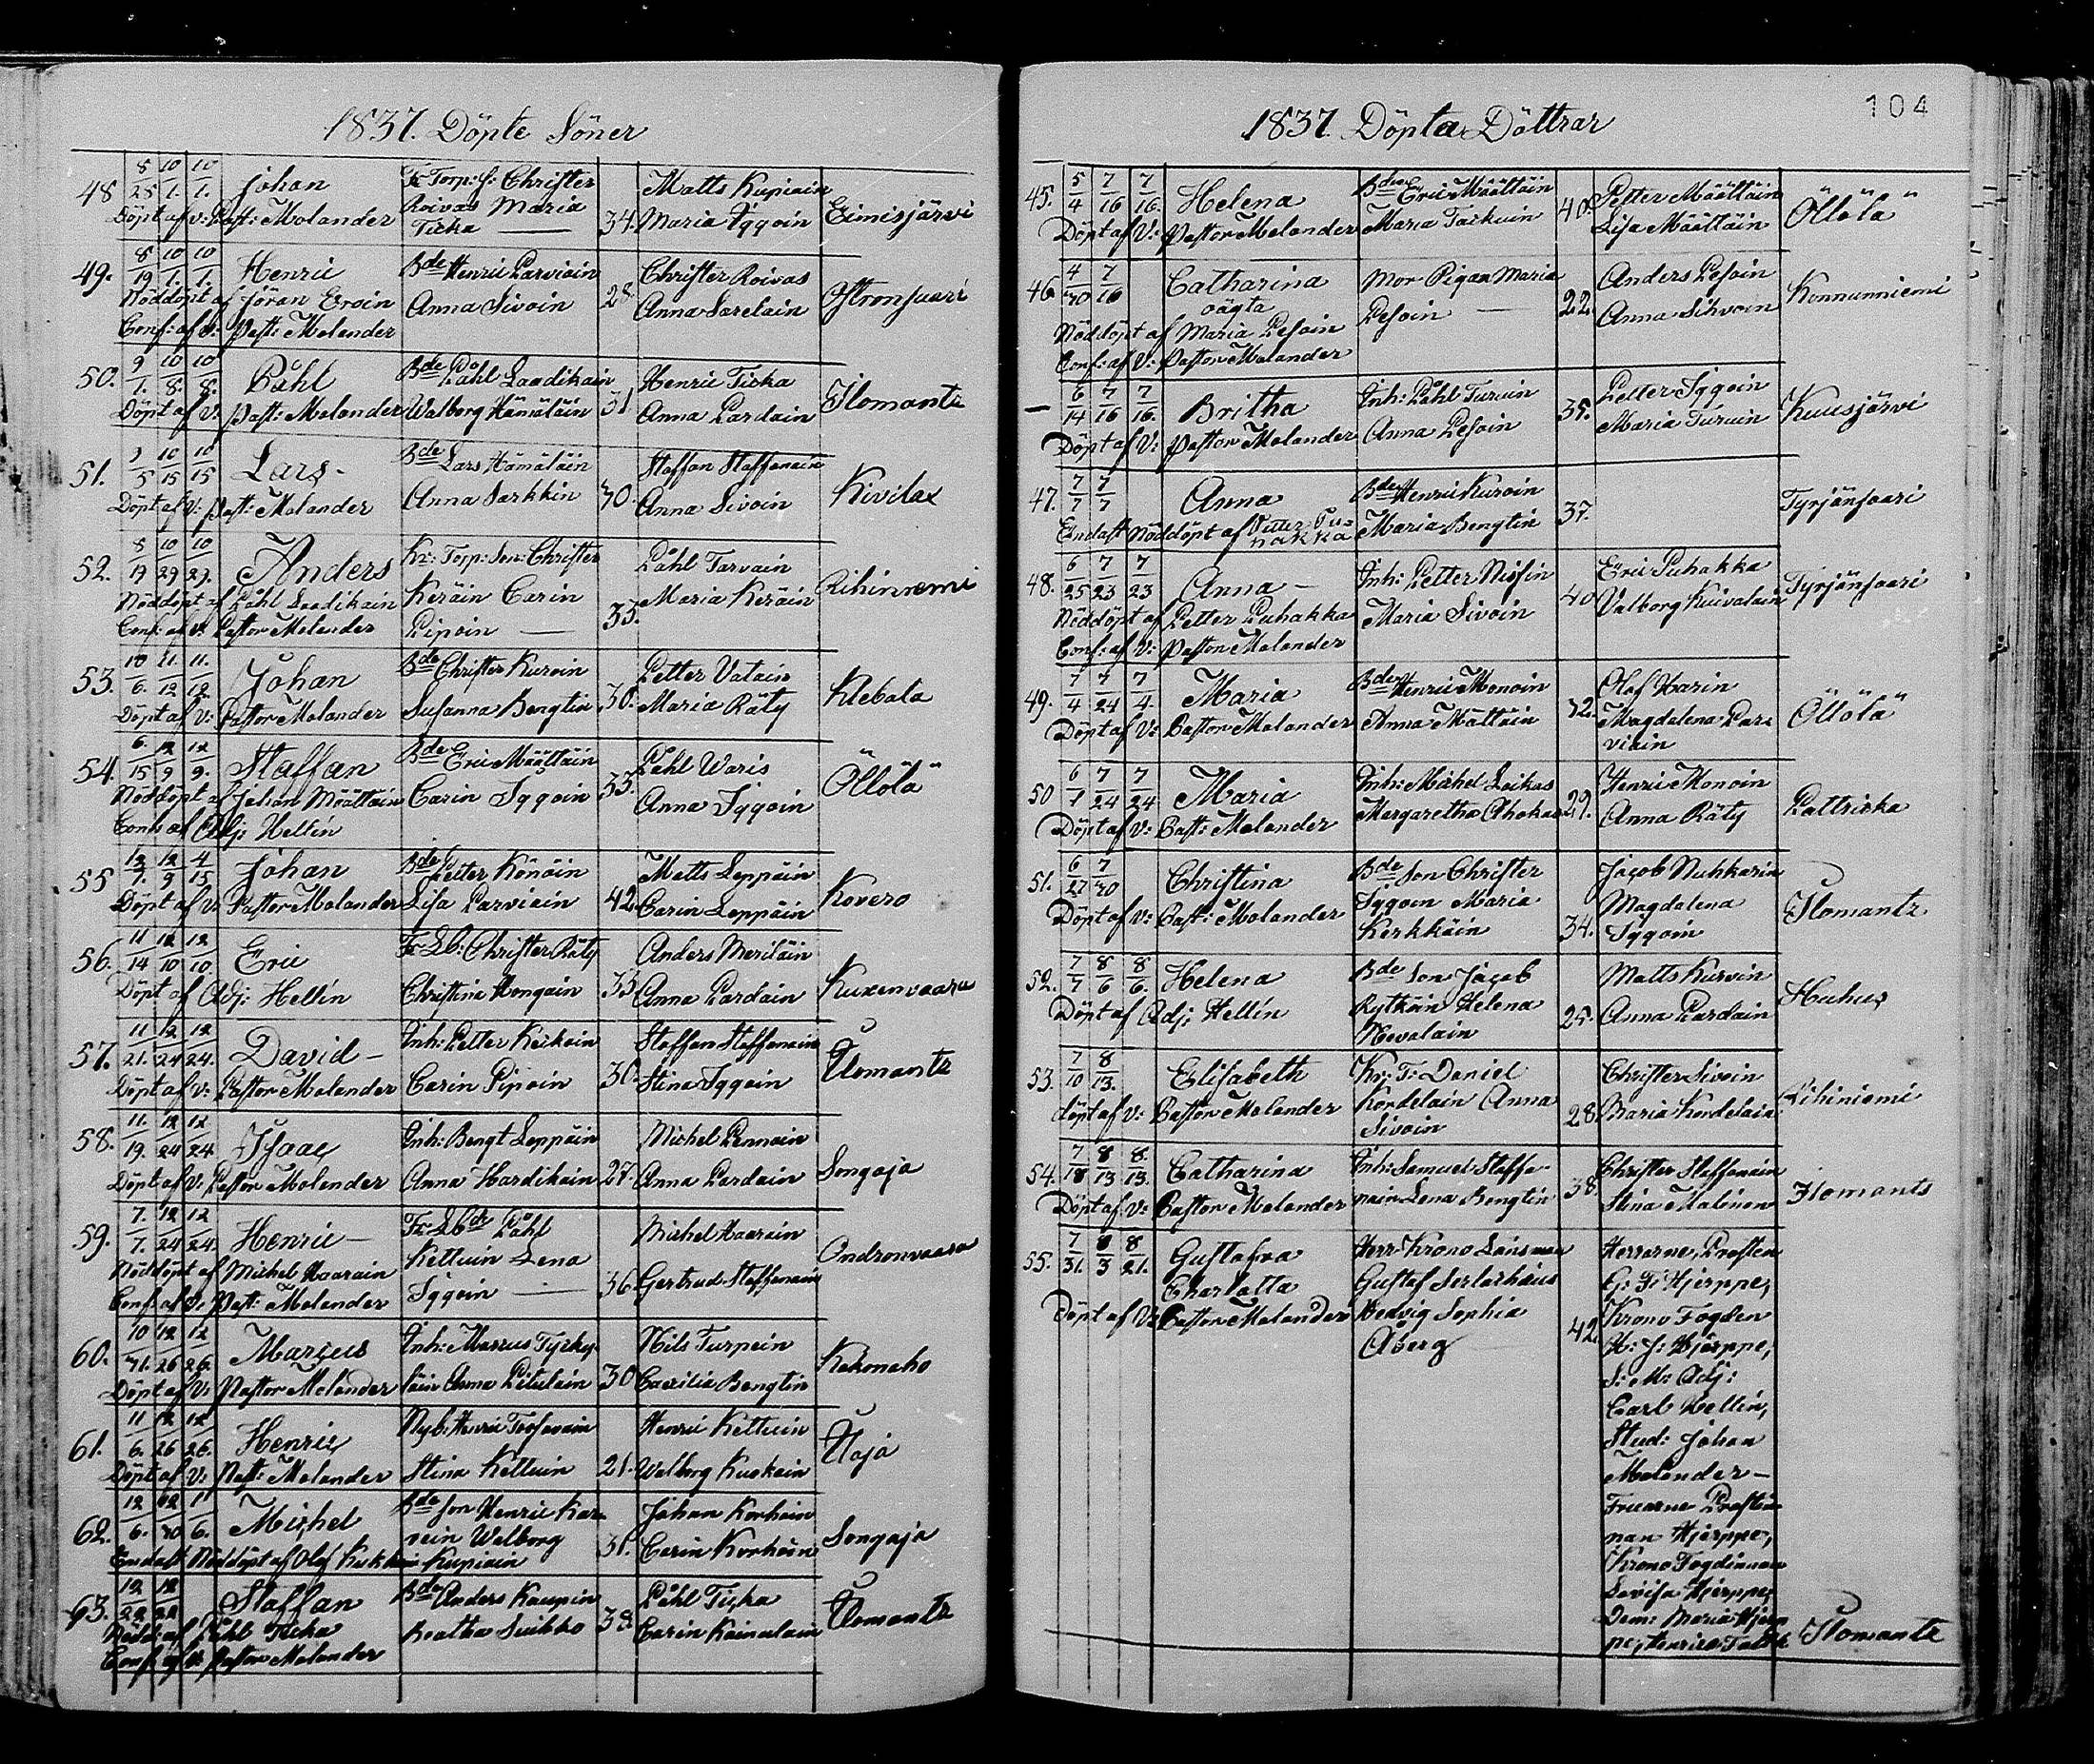 1837. Döpte Söner
48. 8/25 10/1. 10/1. Johan Fr Torp: S: Christer Matts Kupiain
Roivas Maria Eimisjärvi
Döpt af V: Past: Molander Ticka — 34. Maria Iggoin
49. 8/19 10/1. 10/1. Henric Bde Henric Parviain Christer Roivas
Nöddöpt af Jöran Eroin Anna Sivoin 28. Anna Sarelain
Conf: af V: Past: Molander
50. 9/1. 10/8. 10/8. Påhl Bde Påhl Laadikain Henric Ticka
Döpt af V: Past: Molander Walborg Hämäläin 31 Anna Pardain Ilomantz
51. 9/5 10/15 10/15 Lars Bde Lars Hämäläin Staffan Staffanain
Döpt af V: Past: Molander Anna Sarkkin 40. Anna Sivoin Kivilax
52. 8/19 10/29 10/29. Anders Kr: Torp: Son: Christer Påhl Tarvain
Nöddöpt af Påhl Laadikain Keräin Carin 33. Maria Keräin Rihiniemi
Conf: af V: Pastor Molander Pipoin —
53. 10/6. 11/12 11/12. Johan Bde Christer Kuroin Petter Vatain
Döpt af V: Pastor Molander Susanna Bengtin 30. Maria Räty Klebala
54. 6/15 12/9 12/9. Staffan Bde Eric Määttäin Påhl Waris
Nöddöpt af Johan Määttäin Carin Iggoin 33. Anna Iggoin Öllölä
Conf: af Adj: Hellin
55 12/7. 12/9 4/15 Johan Bde Petter Könöin Matts Leppäin
Döpt af V: Pastor Molander Lisa Parviain 42. Carin Leppäin Kovero
56. 11/14 12/10 12/10. Eric Fr Lb: Christer Räty Anders Meriläin
Döpt af Adj: Hellin Christina Hongain 33 Anna Pardain Kuxenvaara
57. 11/21. 12/24 12/24. David Inh: Petter Keikoin Staffan Staffanain
Döpt af V: Pastor Molander Carin Pipoin 30. Stina Iggoin Ilomantz
58. 11/19. 12/24 12/24 Isaac Inh: Bengt Leppäin Michel Pennain
Döpt af V: Pastor Molander Anna Hardikain 27. Anna Pardain Songaja
59. 7/7. 12/24 12/24. Henric Fr Lbde Påhl Michel Haarain
Nöddöpt af Michel Haarain Kettuin Lena Ondronvaara
Conf: af V: Past: Molander Iggoin — 36. Gertrud Staffanain
60. 10/31. 12/26 12/26. Marcus Inh: Marcus Tyrky- Nils Turpein
Döpt af V: Pastor Molander läin Anna Pitulain 30 Caecilia Bengtin Kekonaho
61. 11/6. 12/26 12/26. Henric Nyb: Henric Trofavain Henric Kettuin
Döpt af V: Past: Molander Stina Kettuin 21. Walborg Kuokain Uaja
62. 12/6. 12/30 1/6. Michel Bde Son Henric Kar- Johan Korhoin
vein Walborg 31. Carin Korhoin Songaja
Endast Nöddöpt af Olof Kukkoin Kupiain
63. 12/22 12/22 Staffan Bde Anders Kaupin Påhl Ticka
Nödd: af Påhl Ticka Beatha Suikko 38. Carin Kainulain Ilomantz
Conf: af V: Pastor Molander
104
1837. Döpta Döttrar
45. 5/4 7/16 7/16. Helena Bden Eric Määttäin Petter Määttäin
Döpt af V: Pastor Molander Maria Tackuin 40. Lisa Määttäin Öllölä
46 4/30 7/16 Catharina Mor Pigan Maria Anders Pesoin
oägta Pesoin — 22. Anna Sihvoin Konnunniemi
Nöddöpt af Maria Pesoin
Conf: af V: Pastor Molander
— 6/14 7/16 7/16. Britha Inh: Påhl Turuin Petter Iggoin
Döpt af V: Pastor Molander Anna Pesoin 35. Maria Turuin Kuusjärvi
47. 7/7 7/7 Anna Bden Henric Kuroin Tyrjänsaari
Endast Nöddöpt af Petter Pu- Maria Bengtin 37.
hakka
48. 6/25 7/23 7/23 Anna — Inh: Petter Nissin Eric Puhakka
Nöddöpt af Petter Puhakka Maria Sivoin 40 Valborg Kuivalain Tyrjänsaari
Conf: af V: Pastor Molander
49. 7/4 7/24 7/4. Maria Bden Henric Monoin Olof Harin
Döpt af V: Pastor Molander Anna Mättäin 32. Magdalena Par- Öllölä
viain
50 6/1 7/24 7/24 Maria Inh: Michel Leikas Henric Monoin
Döpt af V: Past: Molander Margaretha Ahokas 29. Anna Räty Pattricka
51. 6/27 7/30 Christina Bde Son Christer Jacob Nuhkarin
Döpt af V: Past: Molander Iggoin Maria Magdalena Ilomantz
Kerkkäin 34. Iggoin
52. 7/7 8/6 8/6. Helena Bde Son Jacob Matts Kurvin
Döpt af Adj: Hellin Rytkäin Helena 25. Anna Pardain Huhus
Nevalain
53. 7/10 8/13. Elisabeth Kr: T: Daniel Christer Sivoin
Döpt af V: Pastor Molander Kondelain Anna 28 Maria Kondelain Rihiniemi
Sivoin
54. 7/18 8/13 8/13. Catharina Inh: Samuel Staffa- Christer Staffanain
Döpt af V: Pastor Molander nain Lena Bengtin 38. Stina Malinen Ilomants
55. 7/31. 8/3 8/21. Gustafva Herr Krono Länsman Herrarne, Prosten
Charlotta Gustaf G: F: Hjerppe,
Döpt af V: Pastor Molander Hedvig Sophia 42. Krono Fogden
Åberg H: J: Hjerppe,
S: M: Adj:
Carl Hellin,
Stud: Johan
Molander —
Fruarne Prostin-
nan Hjerppe,
Krono Fogdinnan
Lovisa Hjerppe,
Dem: Maria Hjerp-
pe, Henrica Ilomantz